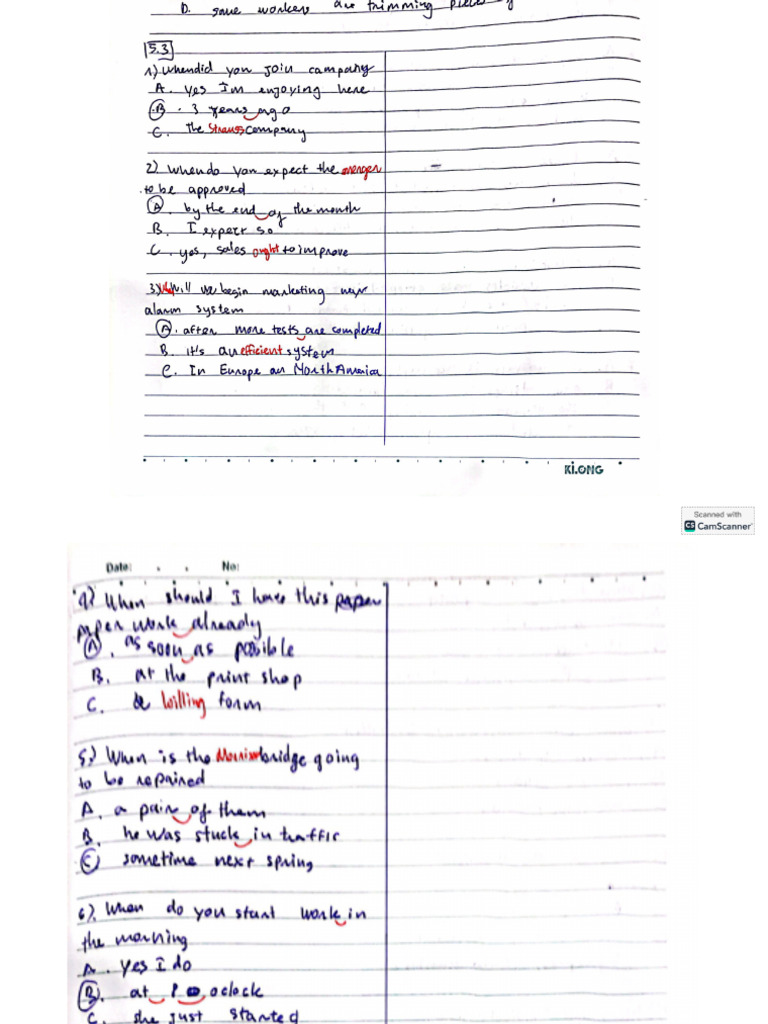 D. some workers are trimming
5.3
1) When did you join company
A. yes Im enjoying here
B. 3 years ago
C. the Strauss company
2) When do you expect the merger
to be approved
A. by the end of the month
B. I expect so
C. yes, sales ought to improve
3) will we begin marketing
alarm system
A. after more tests are completed
B. it's an efficient system
C. In Europe an North America
Ki.ONG
Scanned with
CS CamScanner
Date: . . No:
4) When should I have this paper
paper work already
A. as soon as possible
B. at the print shop
C. billing form
5) When is the bridge going
to be repaired
A. a pair of them
B. he was stuck in traffic
C sometime next spring
6) When do you start work in
the morning
A. yes I do
B. at oclock
C. she just started